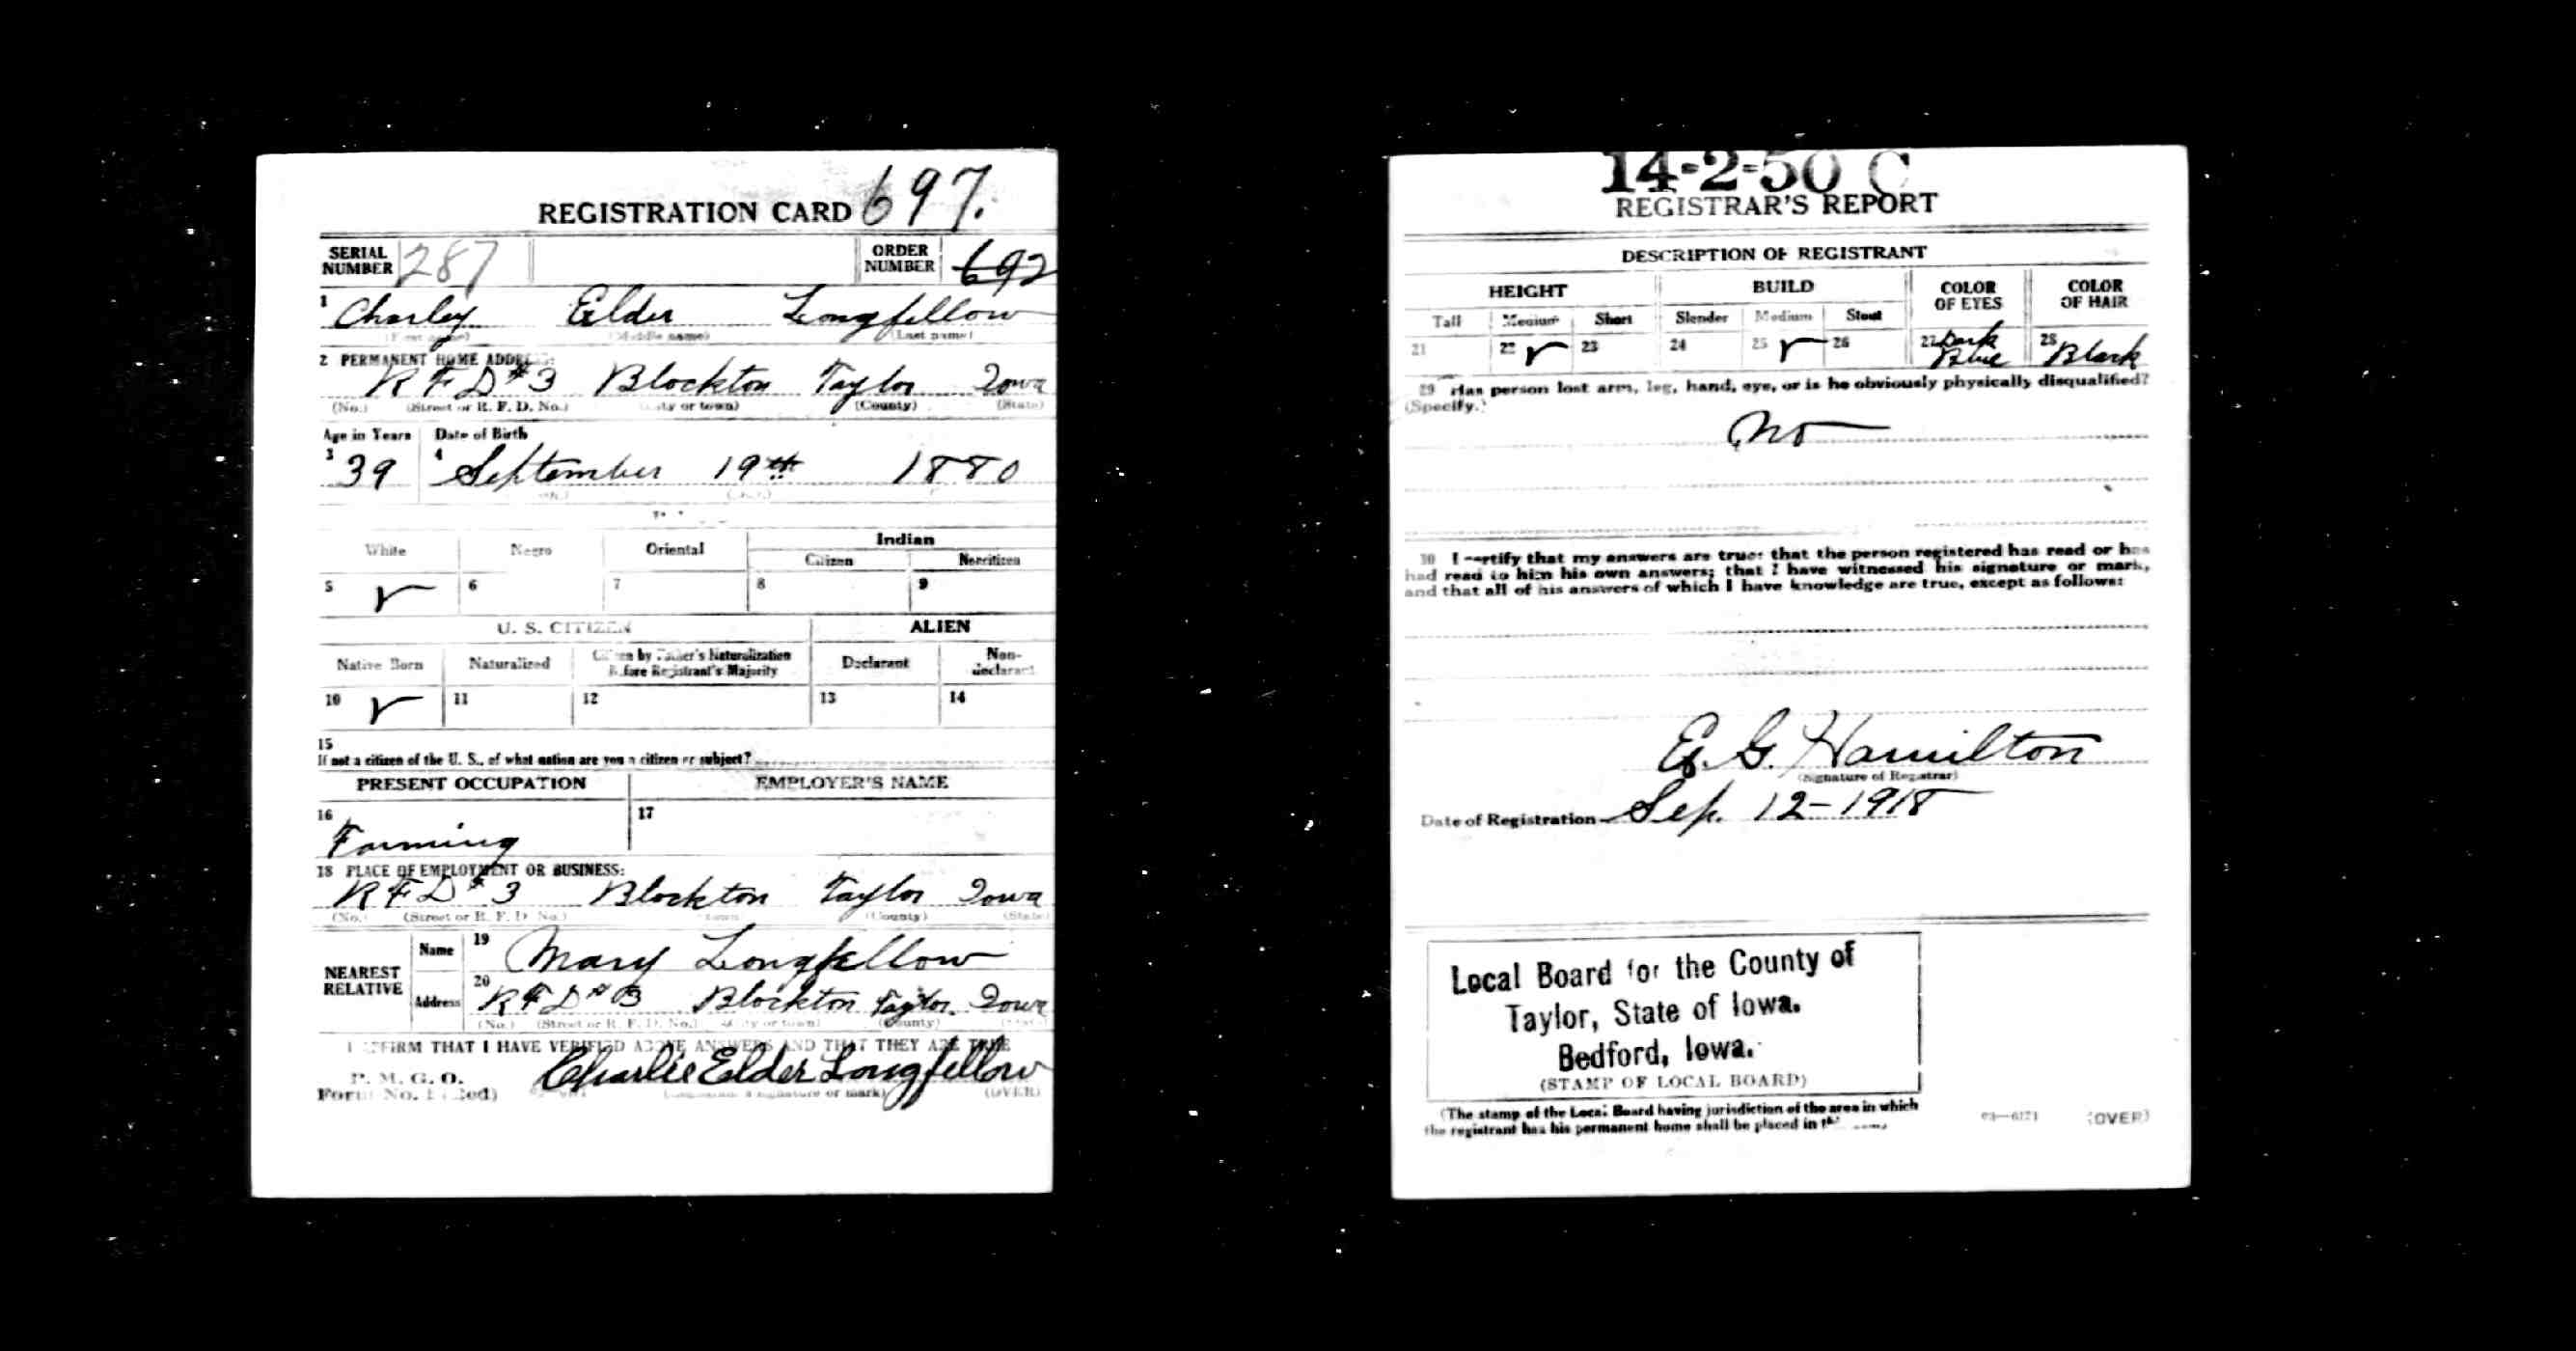 REGISTRATION CARD 697.
SERIAL NUMBER 287
ORDER NUMBER 692
1 Charley Elder Longfellow
(First name) (Middle name) (Last name)
2 PERMANENT HOME ADDRESS:
R F D #3 Blockton Taylor Iowa
(No.) (Street or R. F. D. No.) (City or town) (County) (State)
Age in Years Date of Birth
3 39 4 September 19th 1880
Indian
White Negro Oriental Citizen Noncitizen
5 6 7 8 9
U. S. CITIZEN ALIEN
Native Born Naturalized Citizen by Father's Naturalization Before Registrant's Majority Declarant Non-declarant
10 11 12 13 14
15
If not a citizen of the U. S., of what nation are you a citizen or subject?
PRESENT OCCUPATION EMPLOYER'S NAME
16 17
Farming
18 PLACE OF EMPLOYMENT OR BUSINESS:
R F D # 3 Blockton Taylor Iowa
(No.) (Street or R. F. D. No.) (County) (State)
NEAREST RELATIVE
Name 19 Mary Longfellow
Address 20 R F D # 3 Blockton Taylor. Iowa
(No.) (Street or R. F. D. No.) (City or town) (County)
I AFFIRM THAT I HAVE VERIFIED ABOVE ANSWERS AND THAT THEY ARE TRUE
P. M. G. O.
Form No. 1 (Red) Charlie Elder Longfellow
(Registrant's signature or mark) (OVER)
14-2-50 C
REGISTRAR'S REPORT
DESCRIPTION OF REGISTRANT
HEIGHT BUILD COLOR OF EYES COLOR OF HAIR
Tall Medium Short Slender Medium Stout
21 22 23 24 25 26 27 Dark Blue 28 Black
29 Has person lost arm, leg, hand, eye, or is he obviously physically disqualified?
(Specify.)
No
30 I certify that my answers are true; that the person registered has read or has
had read to him his own answers; that I have witnessed his signature or mark,
and that all of his answers of which I have knowledge are true, except as follows:
E. G. Hamilton
(Signature of Registrar)
Date of Registration Sep. 12-1918
Local Board for the County of
Taylor, State of Iowa.
Bedford, Iowa.
(STAMP OF LOCAL BOARD)
(The stamp of the Local Board having jurisdiction of the area in which
the registrant has his permanent home shall be placed in
(OVER)